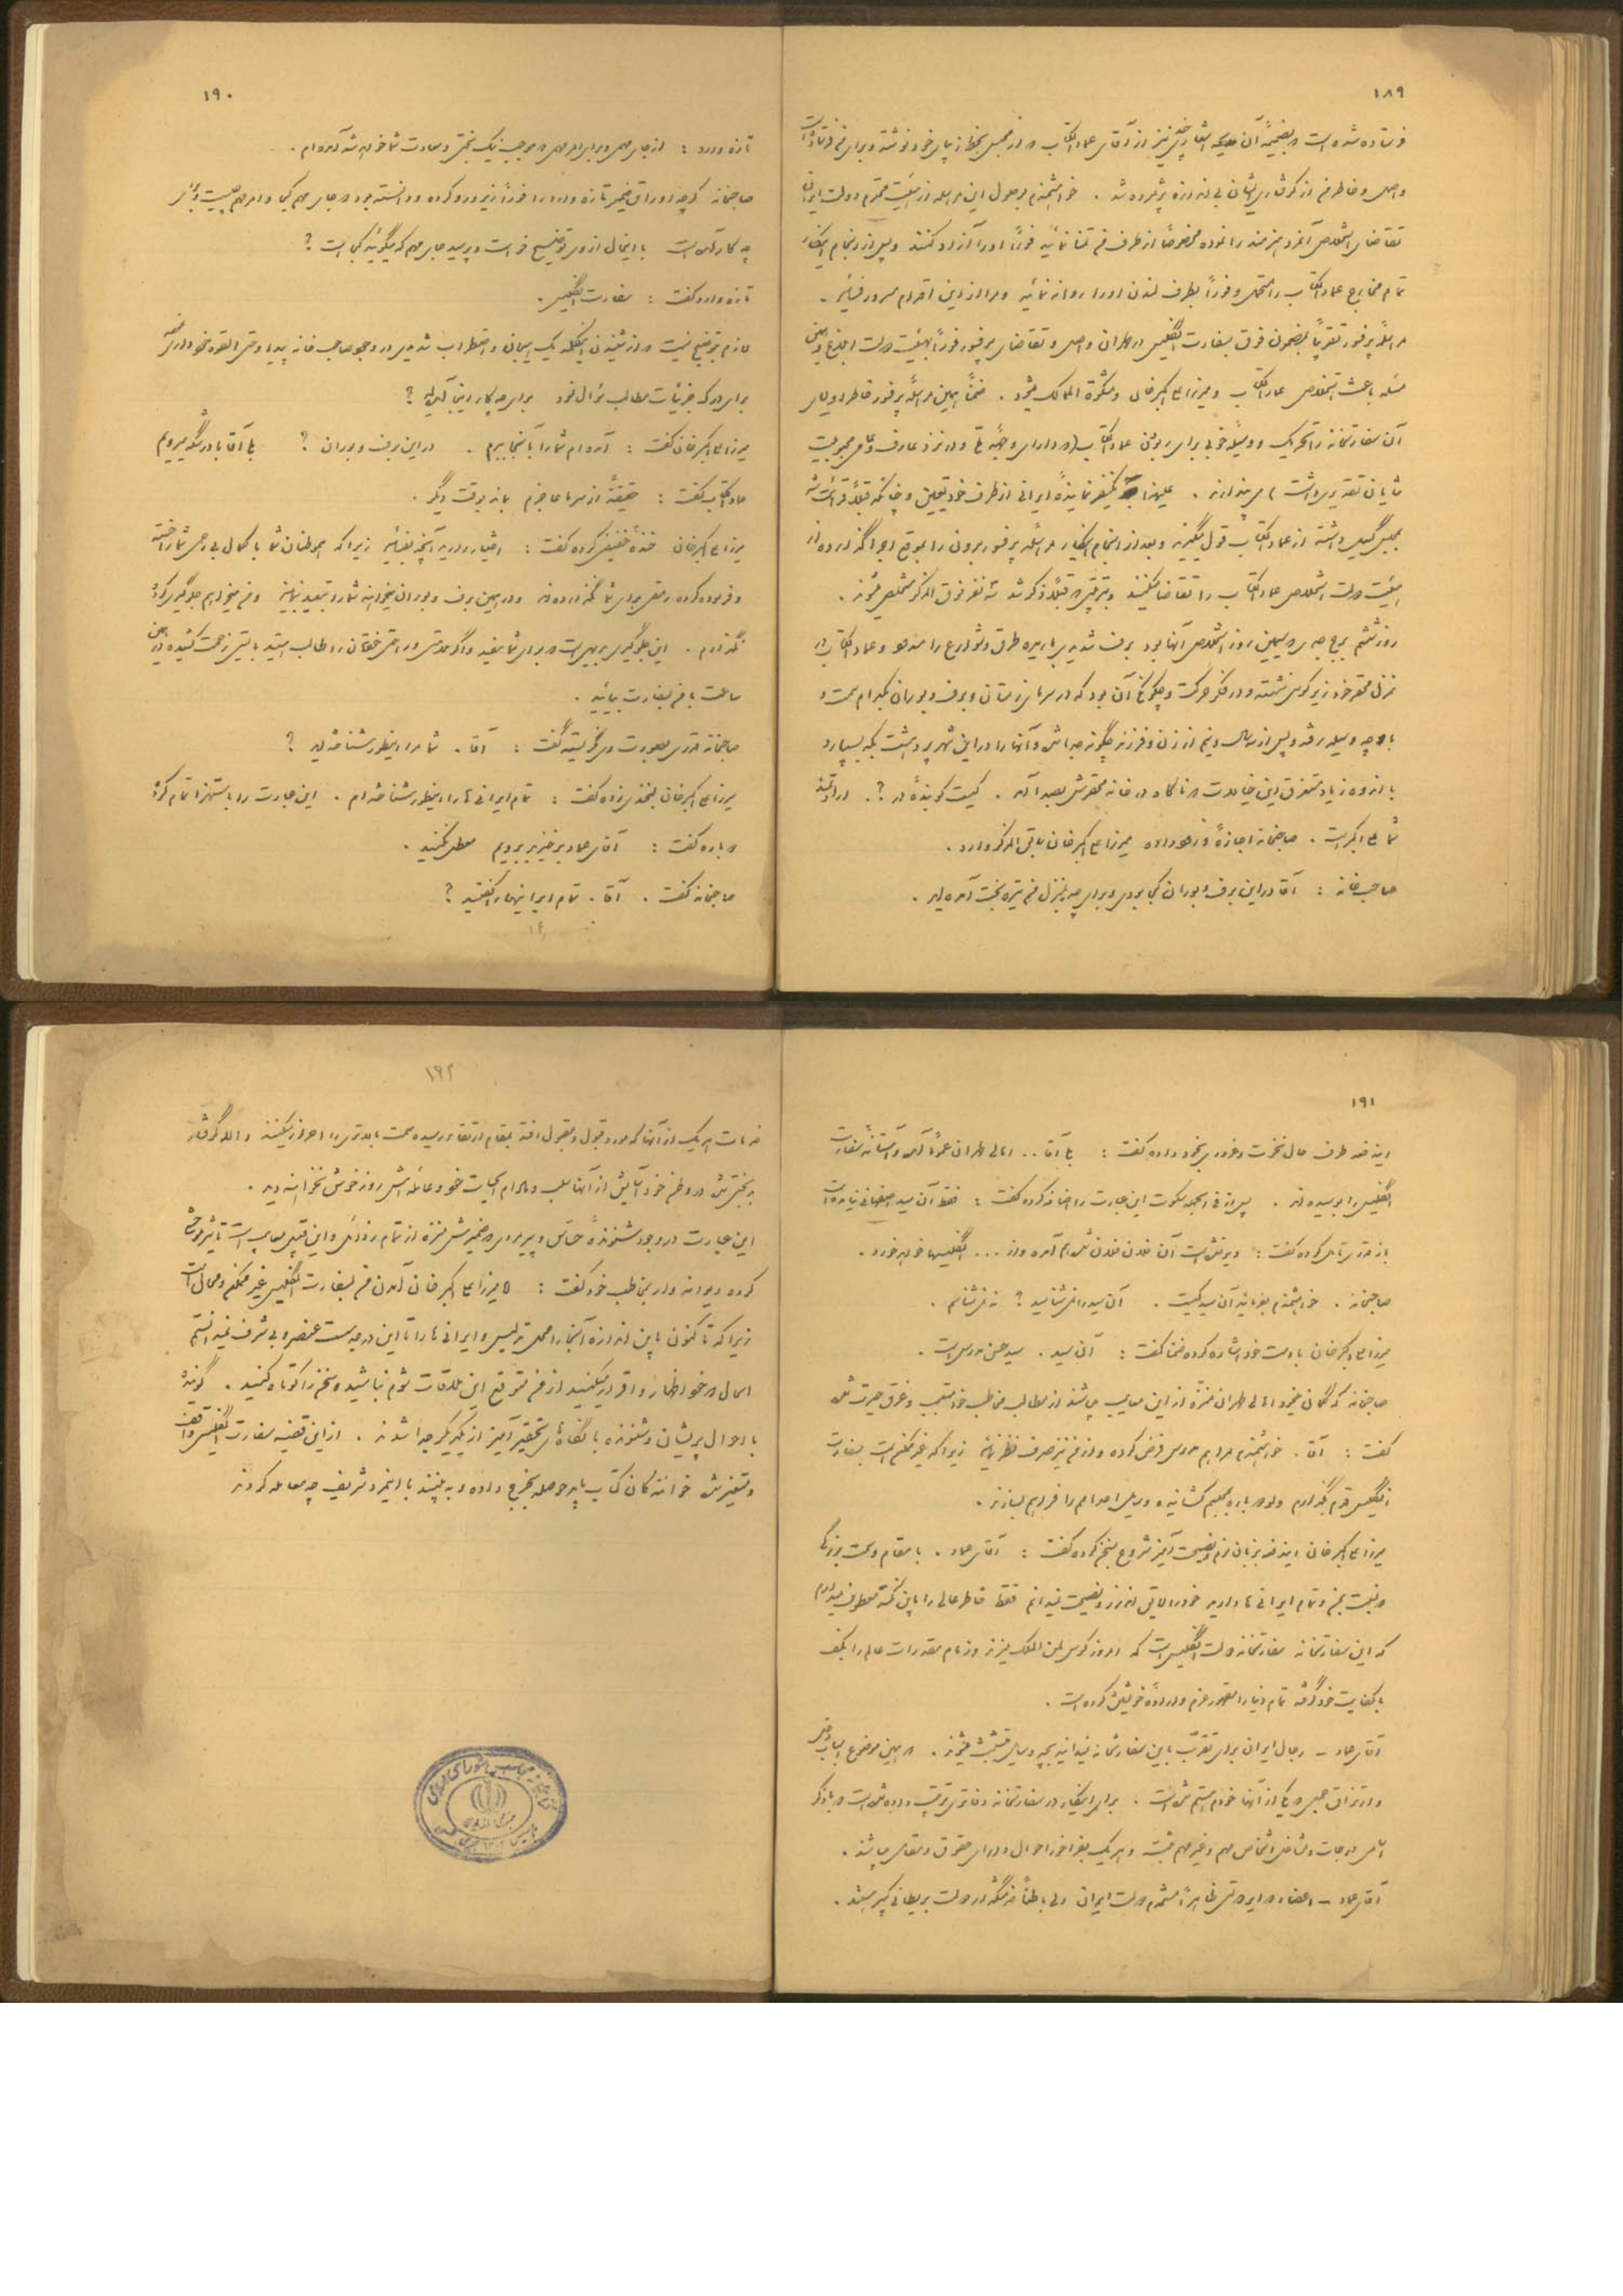 ۱۸۹
فرستاده شده است و بضمیمهٔ آن نیز از آقای عماد الکتاب که از محبس بخط زیبای خود نوشته و برای من فرستاده است
واصل و خاطرم از گرفتاری ایشان بی اندازه پژمرده شد . خواهشمندم بوصول این مراسله از هیئت محترم دولت ایران
تقاضای استخلاص آنمرد هنرمند را نموده مخصوصاً از طرف من تمنا نمائید فوراً او را آزاد کنند و پس از انجام اینکار
تمام مخارج عماد الکتاب را متحمل و فوراً بطرف لندن او را روانه نمائید و مرا از این اقدام مسرور فرمائید .
مراسلهٔ پرفسور تقریباً بمضمون فوق بسفارت انگلیس در طهران واصل و تقاضای پرفسور فوراً بهیئت دولت ابلاغ و همین
مسئله باعث استخلاص عماد الکتاب و میرزا علی اکبر خان و مشکوة الممالک میشود . ضمناً همین مراسلهٔ پرفسور خاطر اولیای
آن سفارتخانه را تحریک و وسیلهٔ خوبی برای ربودن عماد الکتاب (که دارای وجههٔ ملی و در نزد عارف و عامی محبوبیت
شایان تقدیری داشت) می پندارند . علیهذا یکنفر نمایندهٔ ایرانی از طرف خود تعیین و چنانکه قبلاً قرائت شد
بمحبس گسیل داشته از عماد الکتاب قول میگیرند و بعد از انجام اینکار مراسله پرفسور برون را بموقع اجرا گذارده از
هیئت دولت استخلاص عماد الکتاب را تقاضا میکنند و بترتیبی که قبلاً ذکر شد سه نفر فوق الذکر مستخلص میشوند .
روز ششم برج جدی که سیمین روز استخلاص آنها بود برف شدیدی باریده طرق و شوارع را مسدود و عماد الکتاب در
منزل محقر خود زیر کرسی نشسته و در فکر حرکت و چگونگی آن بود که در سرمای زمستان و برف و بوران بکدام سمت و
با چه وسیله رفته و پس از سه سال و نیم از زن و فرزند چگونه جدا شده و آنها را در این شهر پر وحشت بکه بسپارد
با اندوه زیاد مستغرق این خیالات که ناگاه در خانه محقرش بصدا آمد . کیست کوبندهٔ در ؟ . ارادتمند
شما علی اکبر است . صاحبخانه اجازهٔ ورود داده میرزا علی اکبر خان سابق الذکر وارد .
صاحبخانه : آقا در این برف و بوران کجا بودی و برای چه بمنزل من تیره بخت آمده اید .
۱۹۰
تازه وارد : از جای مهمی و برای امر مهمی که موجب نیک بختی و سعادت شما خواهد شد آمده ام .
صاحبخانه گرچه اوراق ضمیر تازه وارد را فوراً زیر و رو کرده و دانسته بود که جای مهم کجا و امر مهم چیست و برای
چه کار آمده است با اینحال از وی توضیح خواست و پرسید جای مهم که میگوئید کجا است ؟
تازه وارد گفت : سفارت انگلیس .
لازم بتوضیح نیست که از شنیدن اینکلمه یک هیجان و اضطراب شدیدی در وجود صاحب خانه پیدا و حتی القوه خودداری نموده
برای درک جزئیات مطالب سؤال نمود برای چه کار اینجا آمده اید ؟
میرزا علی اکبر خان گفت : آمده ام شما را بآنجا ببرم . در این برف و بوران ؟ بلی آقا با درشکه میرویم
عماد الکتاب گفت : حقیقة از سرما عاجزم بماند بوقت دیگر .
میرزا علی اکبر خان خندهٔ خفیفی کرده گفت : اختیار دارید آنچه بفرمائید زیرا که هموطنان شما با کمال بی رحمی شما را خسته
و فرسوده کرده رمقی برای شما نگذارده اند و در همین برف و بوران میخواهند شما را تبعید نمایند و من میخواهم جلوگیری کرده
نگذارم . این جلوگیری بدیهی است که برای شما مفید و اگر سلامتی و راحتی خودتان را طالب هستید بایستی زحمت کشیده در همین
ساعت با من بسفارت بیائید .
صاحبخانه قدری بصورت وی نگریسته گفت : آقا . شما مرا اینطور شناخته اید ؟
میرزا علی اکبر خان لبخندی زده گفت : تمام ایرانی ها را اینطور شناخته ام . این عبارت را باستهزا تمام کرده
دوباره گفت : آقای عماد برخیزید برویم معطل نکنید .
صاحبخانه گفت . آقا . تمام ایرانیها را گفتید ؟
۱۹۱
ایندفعه طرف حال نخوت و غروری بخود داده گفت : بلی آقا .. اهالی طهران عموماً آمده و آستانهٔ سفارت
انگلیس را بوسیده اند . پس از فی الجمله سکوت این عبارت را اضافه کرده گفت : فقط آن سید اصفهانی نیامده است
باز قدری تأمل کرده گفت : دیر نشده است آن هم آمده و از ... انگلیسها خواهد خورد .
صاحبخانه . خواهشمندم بفرمائید آن سید کیست . آن سید را نمی شناسید ؟ نه نمیشناسم .
میرزا علی اکبر خان با دست خود اشاره کرده ضمناً گفت : آن سید . سید حسن مدرس است .
صاحبخانه که گمان میکرد اهالی طهران منزه از این معایب میباشند از مطالب مخاطب خود متعجب و غرق حیرت شده
گفت : آقا . خواهشمندم مرا هم مدرس فرض کرده و از من نیز صرف نظر نمائید زیرا که غیر ممکن است بسفارت
انگلیس قدم بگذارم ولو دوباره بمحبسم کشانیده و وسایل اعدامم را فراهم سازند .
میرزا علی اکبر خان ایندفعه بزبان نرم و نصیحت آمیز شروع بسخن کرده گفت : آقای عماد . با مقام و سمت بزرگی
که نسبت بمن و تمام ایرانی ها دارید خود را لایق اندرز و نصیحت نمیدانم فقط خاطر عالی را باین نکته معطوف میدارم
که این سفارتخانه سفارتخانه دولت انگلیس است که امروز کوس لمن الملک میزند و زمام مقدرات عالم را بکف
با کفایت خود گرفته تمام دنیا را مقهور عزم و ارادهٔ خویشتن کرده است .
آقای عماد ـ رجال ایران برای تقرب باین سفارتخانه نمیدانید بچه وسایلی متشبث میشوند . در همین موضوع اسباب
و ارتزاق جمعی که یکی از آنها خودم هستم شده است . برای اینکار در سفارتخانه دفاتری ترتیب داده شده است که با ذکر
اسامی درجات و مشاغل اشخاص مهم و غیر مهم ثبت و هر یک بفراخور احوال دارای حقوق و مقامی میباشند .
آقای عماد ـ اعضاء دوایر دولتی ظاهراً مستخدم دولت ایران ولی باطناً خدمتگذار دولت بریطانی کبیر هستند .
۱۹۲
خدمات هر یک از آنها که مورد قبول و مقبول افتد بمقام ارتقاء رسیده سمت بالاتری را احراز میکنند والا گرفتار
بدبختی شده در وطن خود آسایش از آنها سلب و مادام الحیات خود و عائله اش روز خوش نخواهند دید .
این عبارت در وجود شنوندهٔ حساس و پیرمردی که ضمیرش منزه از تمام رذائل و این قبیل معایب است تأثیر موحشی
کرده دیوانه وار بمخاطب خود گفت : میرزا علی اکبر خان آمدن من بسفارت انگلیس غیر ممکن و محال است
زیرا که تا کنون باین اندازه آنجا را محل تدلیس و ایرانی ها را تا این درجه سست عنصر و بی شرف نمیدانستم
الحال که خود اظهار و اقرار میکنید از من متوقع این ملاقات شوم نباشید و سخن را کوتاه کنید . گوینده
با احوال پریشان و شنونده با نگاه های تحقیر آمیز از یکدیگر جدا شدند . از این قضیه سفارت انگلیس واقف
و متغیر شده خوانندگان کتاب باید حوصله بخرج داده و به بینند با این مرد شریف چه معامله کردند